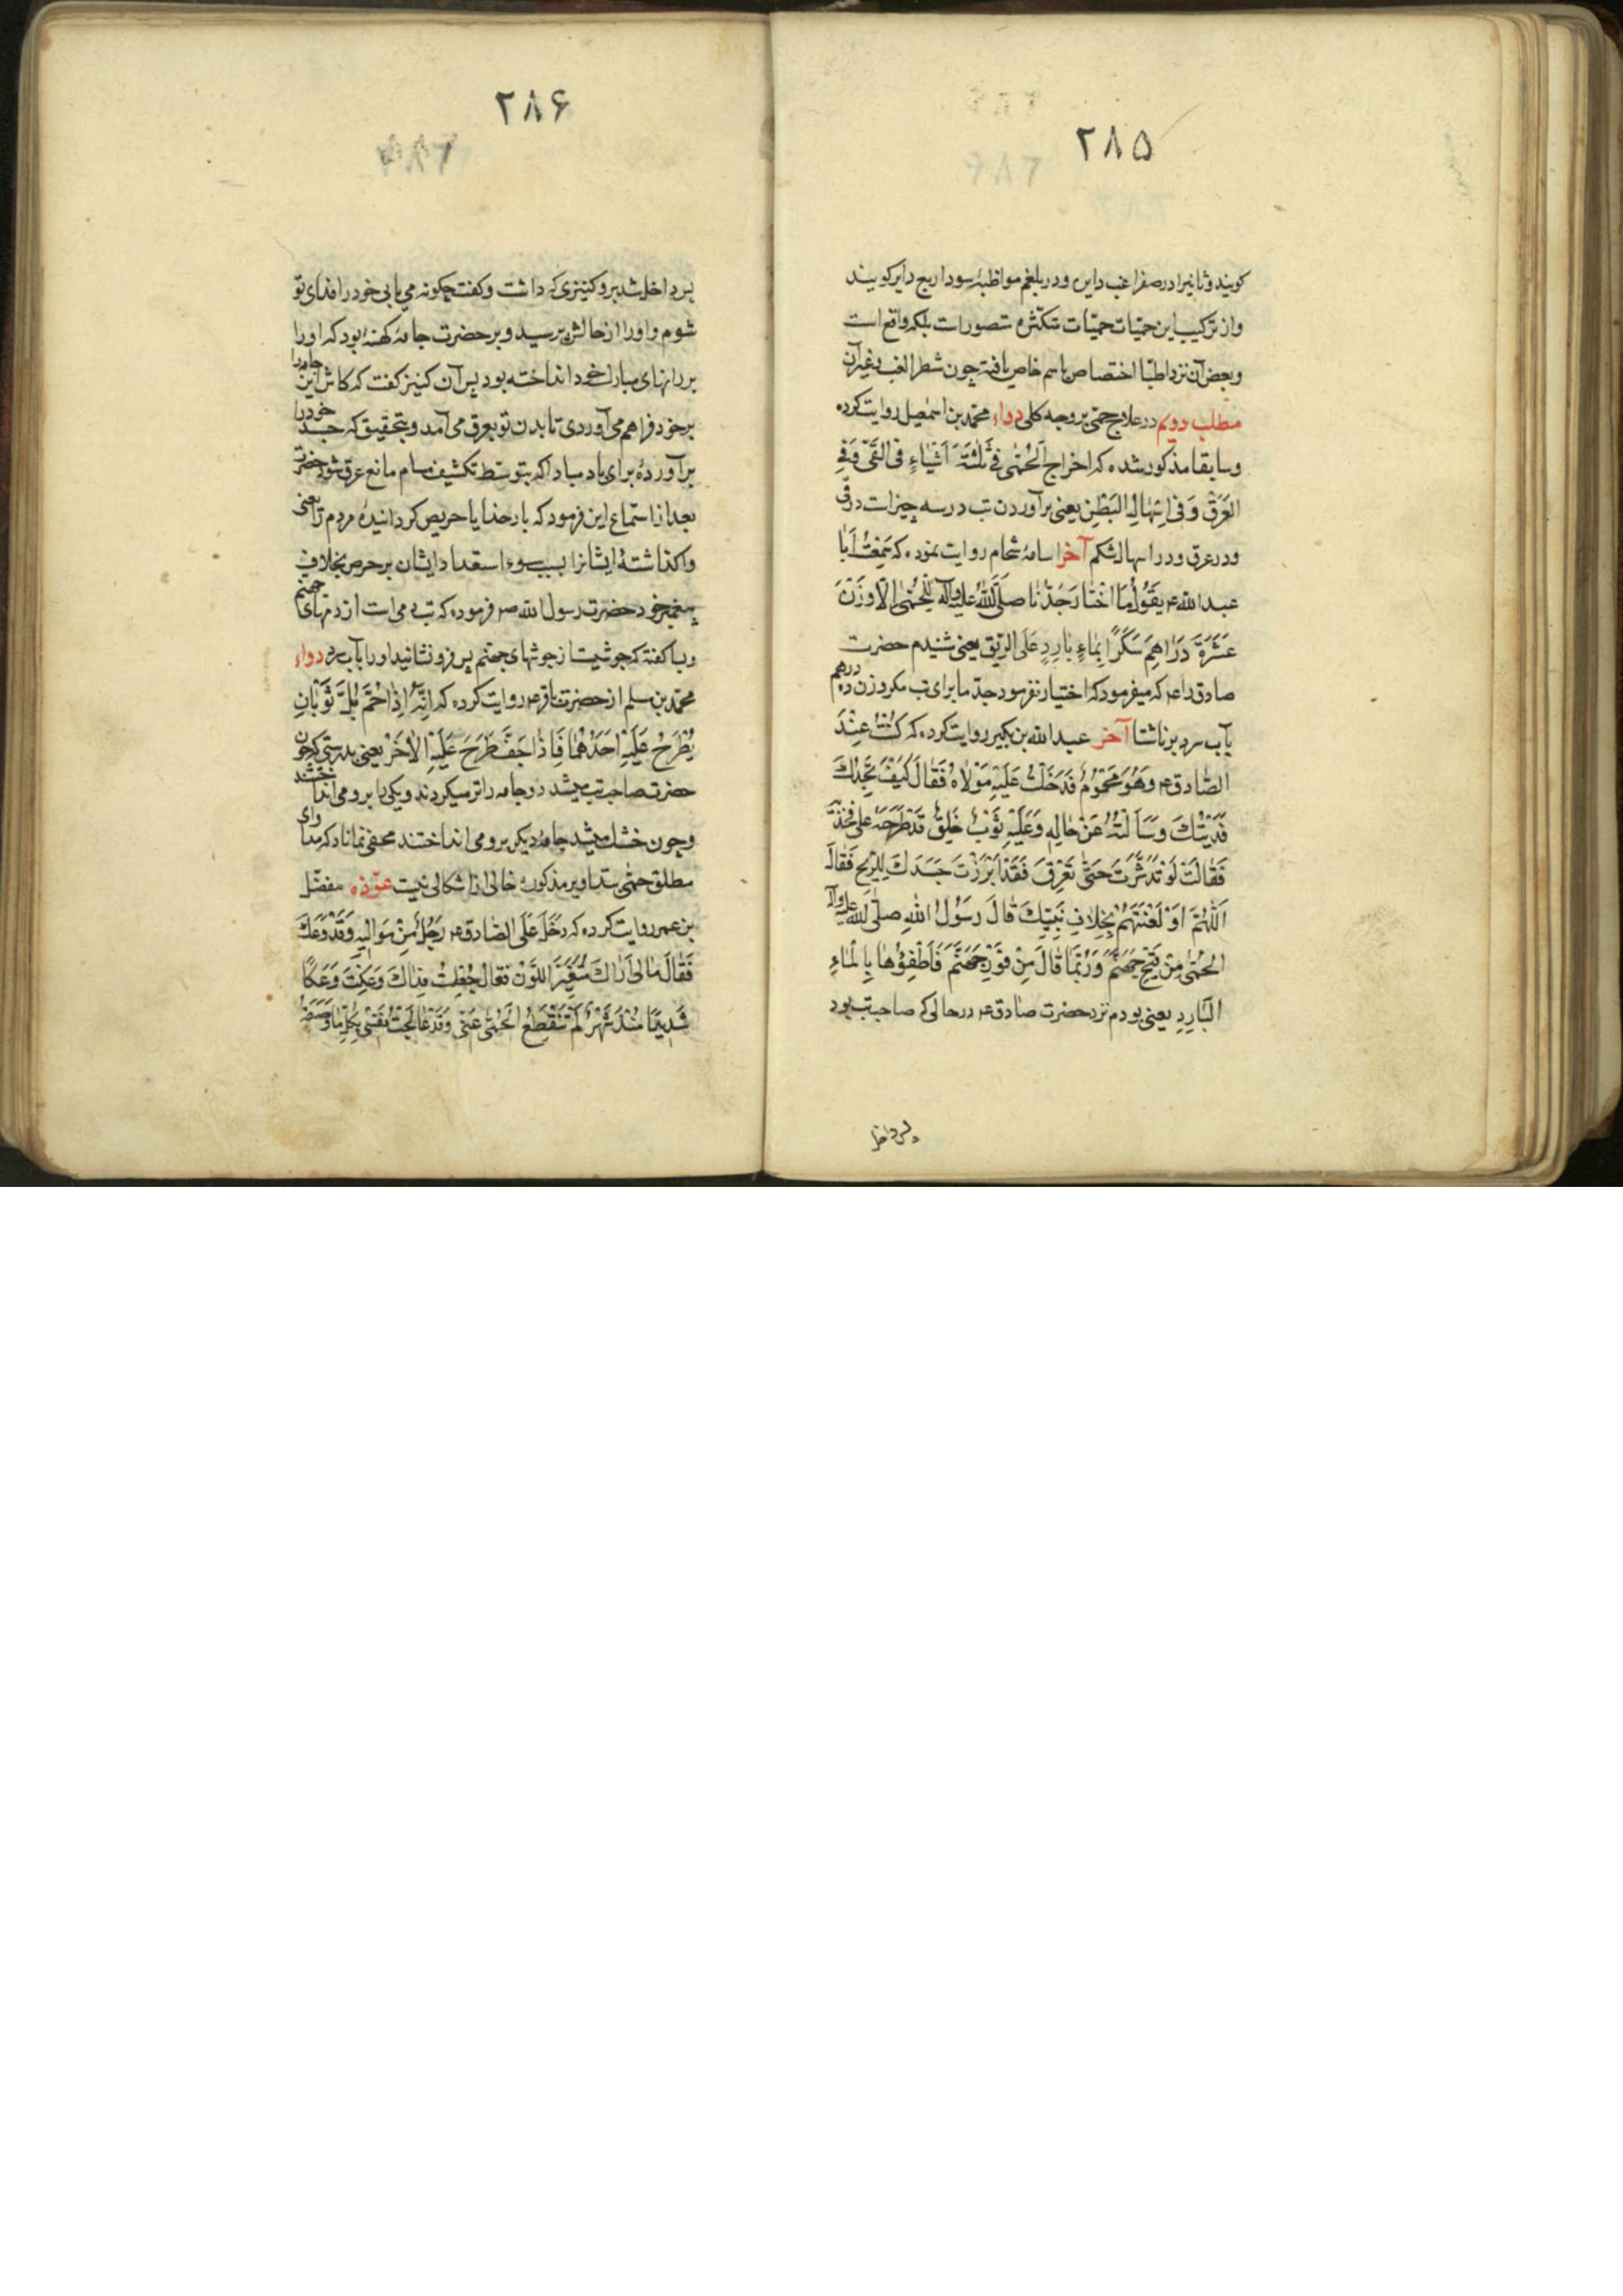 ۲۸۵
کویند و ثانیرا در صفرا غب دایره و در بلغم مواظبه و سودا ربع دایر کویند
و از ترکیب این حمیّات حمیّات متکثره متصور است بلکه واقع است
و بعض آن نزد اطبّا اختصاص باسم خاص یافته چون شطر الغب و غیر آن
مطلب دویم در علاج حمّی بر وجه کلی دواء محمّد بن اسمعیل روایت کرده
و سابقا مذکور شده که اخراج الْحُمّٰی فی ثَلٰثَةِ اَشْیٰاءٍ فی القَیّ وَ فِی
العَرَقْ وَ فی اِسْهٰالِ البَطْنِ یعنی برآوردن تب در سه چیز است در قی
و در عرق و در اسهال شکم آخر اسامهٔ شحام روایت نموده که سَمِعْتُ اَبٰا
عبد الله ع یَقُولُ مٰا اخْتٰارَ جَدُّنٰا صَلَّی اللّٰهُ عَلَیْهِ وَآلِهِ لِلْحُمّٰی اِلّا وَزْنَ
عَشَرَةِ دَرٰاهِمَ سُکَّرًا بِمٰاءٍ بٰارِدٍ عَلَی الرّیقِ یعنی شنیدم حضرت
صادق را ع که میفرمود که اختیار نفرمود جدّ ما برای تب مکر وزن ده درهم
بآب سرد بر ناشتا آخر عبد الله بن بکیر روایت کرده که کُنْتُ عِنْدَ
الصّٰادق ع وَهُوَ مَحْمُومٌ فَدَخَلَتْ عَلَیْهِ مَوْلٰاةٌ فَقٰالَتْ کَیْفَ تَجِدُكَ
فَدَیْتُكَ وَسَاَلَتْهُ عَنْ حٰالِهِ وَعَلَیْهِ ثَوْبٌ خَلِقٌ قَدْ طَرَحَهُ عَلی فَخِذَیْهِ
فَقٰالَتْ لَوْ تَدَثَّرْتَ حَتّٰی تَعْرَقَ فَقَدْ اَبْرَزْتَ جَسَدَكَ لِلرّیحِ فَقٰالَ
اَللّٰهُمَّ اَوْلَعْتَهُمْ بِخِلٰافِ نَبِیِّكَ قٰالَ رَسُولُ اللهِ صلّی الله علیه وآله
الحُمّٰی مِنْ فَیْحِ جَهَنَّمَ وَرُبَّمٰا قٰالَ مِنْ فَوْرِ جَهَنَّمَ فَاَطْفِؤُهٰا بِالْمٰاءِ
الْبٰارِدِ یعنی بودم نزد حضرت صادق ع در حالی که صاحب تب بود
پس داخل
۲۸۶
پس داخل شد برو کنیزی که داشت و کفت چکونه می یابی خود را فدای تو
شوم و او را از حالش پرسید و بر حضرت جامهٔ کهنهٔ بود که او را
بر رانهای مبارك خود انداخته بود پس آن کنیز کفت که کاش این جامه را
بر خود فراهم می آوردی تا بدن تو بعرق می آمد و بتحقیق که جسد خود را
برآوردهٔ برای باد مبادا که بتوسط تکشیف مسام مانع عرق شود حضرت
بعد از استماع این فرمود که بار خدایا حریص کردانیدهٔ مردم را یعنی
واکذاشتهٔ ایشانرا بسبب سوء استعداد ایشان بر حرص بخلاف
پیغمبر خود حضرت رسول الله ص فرموده که تب دمی است از دمهای جهنم
و بسا کفته که جوشیست از جوشهای جهنم پس فرو نشانید او را بآب سرد دواء
محمّد بن مسلم از حضرت باقر ع روایت کرده که اِنَّهُ اِذٰا حُمَّ بُلَّ ثَوْبٰانِ
یُطْرَحُ عَلَیْهِ اَحَدُهُمٰا فَاِذٰا جَفَّ طُرِحَ عَلَیْهِ الْاٰخَرُ یعنی بدرستی که چون
حضرت صاحب تب میشد دو جامه را تر میکردند و یکی را برو می انداختند
و چون خشك میشد جامهٔ دیکر برو می انداختند مخفی نماناد که مداوای
مطلق حمّی بتدابیر مذکوره خالی از اشکالی نیست عوذه مفضّل
بن عمر روایت کرده که دَخَلَ عَلَی الصّٰادق ع رَجُلٌ مِنْ مَوٰالیهِ وَقَدْ وُعِكَ
فَقٰالَ مٰالی اَرٰاكَ مُتَغَیِّرَ اللَّوْنِ فَقٰالَ جُعِلْتُ فِدٰاكَ وُعِکْتُ وَعَکًا
شَدیدًا مُنْذُ شَهْرٍ لَمْ تَنْقَطِعُ الْحُمّٰی عَنّی وَقَدْ عٰالَجْتُ نَفْسی بِکُلِّ مٰا وَصَفَهُ